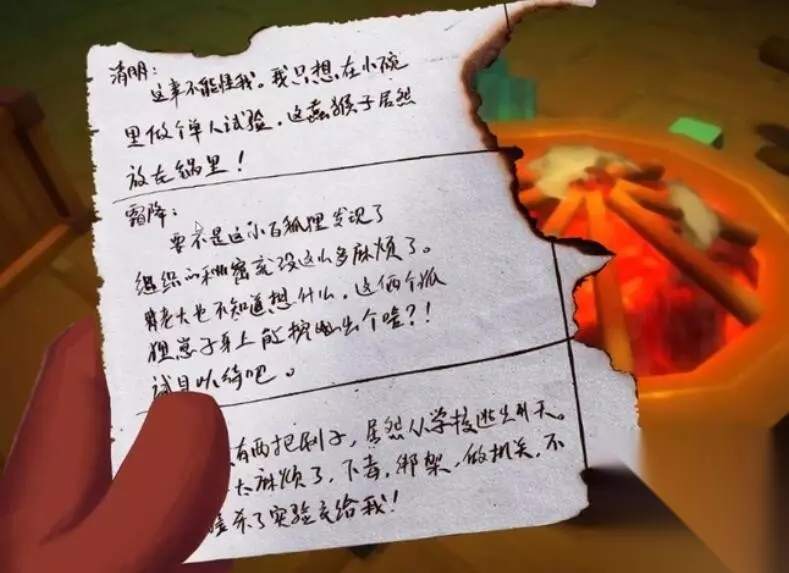 清明：
这事不能怪我。我只想在小碗
里做个单人试验，这蠢猴子居然
放在锅里！
霜降：
要不是这小白狐狸发现了
组织的秘密充没这么多麻烦了。
老大也不知道想什么，这俩个狐
狸崽子身上能挖掘出个啥？！
试目以待吧。
有两把刷子，居然从学校逃出升天。
太麻烦了，下毒，绑架，做机关，不
杀了实验交给我！